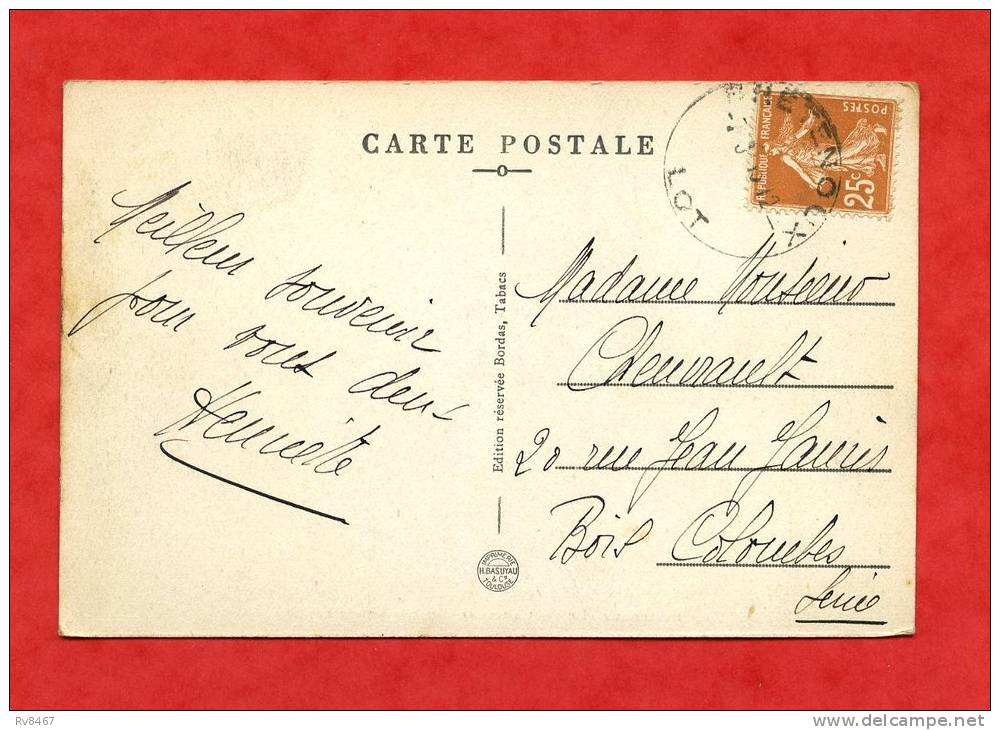 CARTE POSTALE
Meilleur souvenir
pour vous deux
Henriette
Edition réservée Bordas, Tabacs
IMPRIMERIE
H. BASUYAU
& Cº
TOULOUSE
BRETENOUX
LOT
REPUBLIQUE FRANÇAISE
POSTES
25c
Madame
20 rue Jean Jaurès
Bois Colombes
Seine
Rv8467
delcampe.net